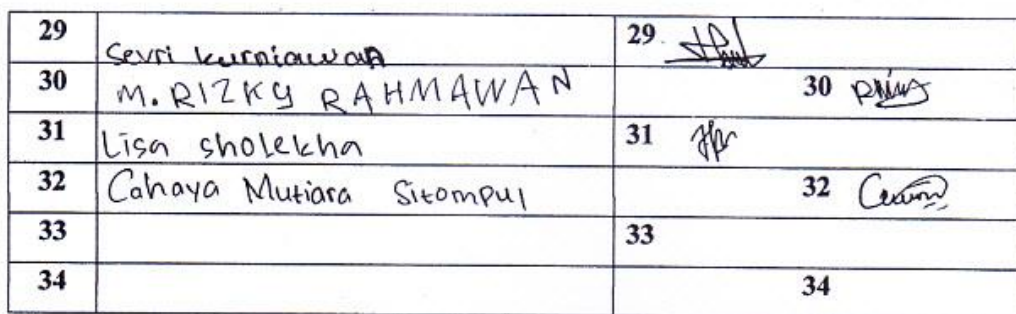 29 Sevri kurniawan 29
30 M. RIZKY RAHMAWAN 30
31 Lisa sholekha 31
32 Cahaya Mutiara Sitompul 32
33 33
34 34